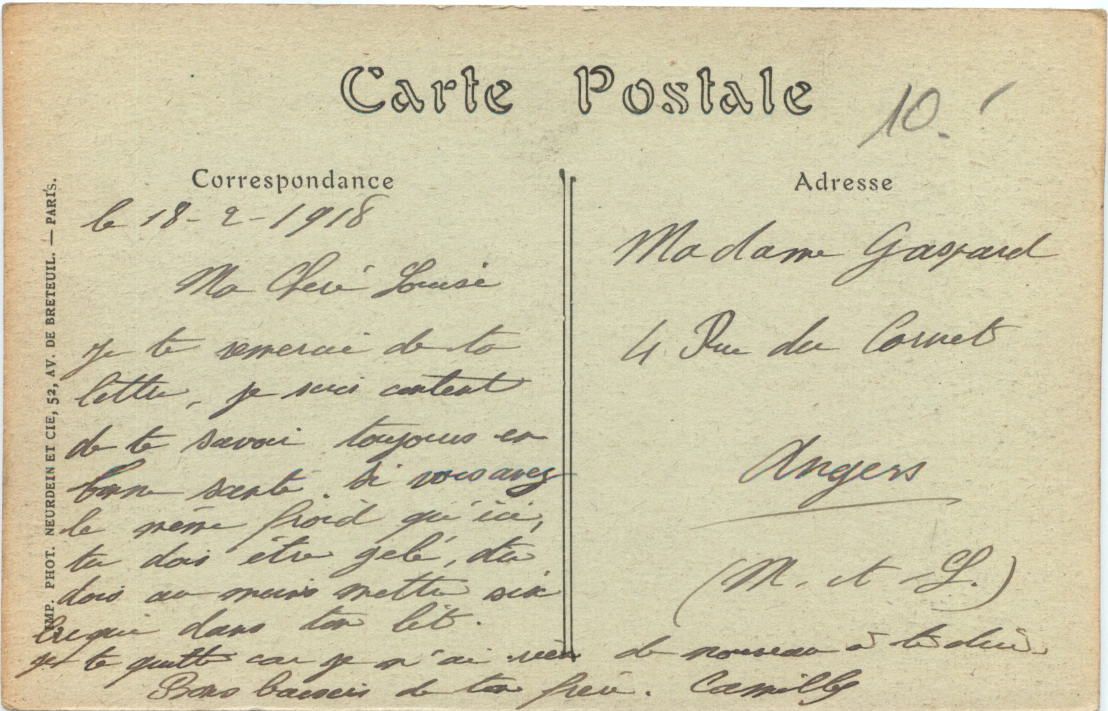 Carte Postale
10.
Correspondance
le 18-2-1918
Ma Cheré Louise
je te remerai de ta
lettre, je suis content
de te savoir toujours en
bonne santé. Si vous avez
le même froid qu'ici,
tu dois être gelé, tu
dois au moins mettre six
brique dans ton lit.
je te quitte car je n'ai rien de nouveau à te dire.
Bons baisers de ton frère. Camille
Adresse
Madame Gaspard
4 Rue du Cornet
Angers
(M. et L.)
IMP. PHOT. NEURDEIN ET CIE, 52, AV. DE BRETEUIL. — PARIS.